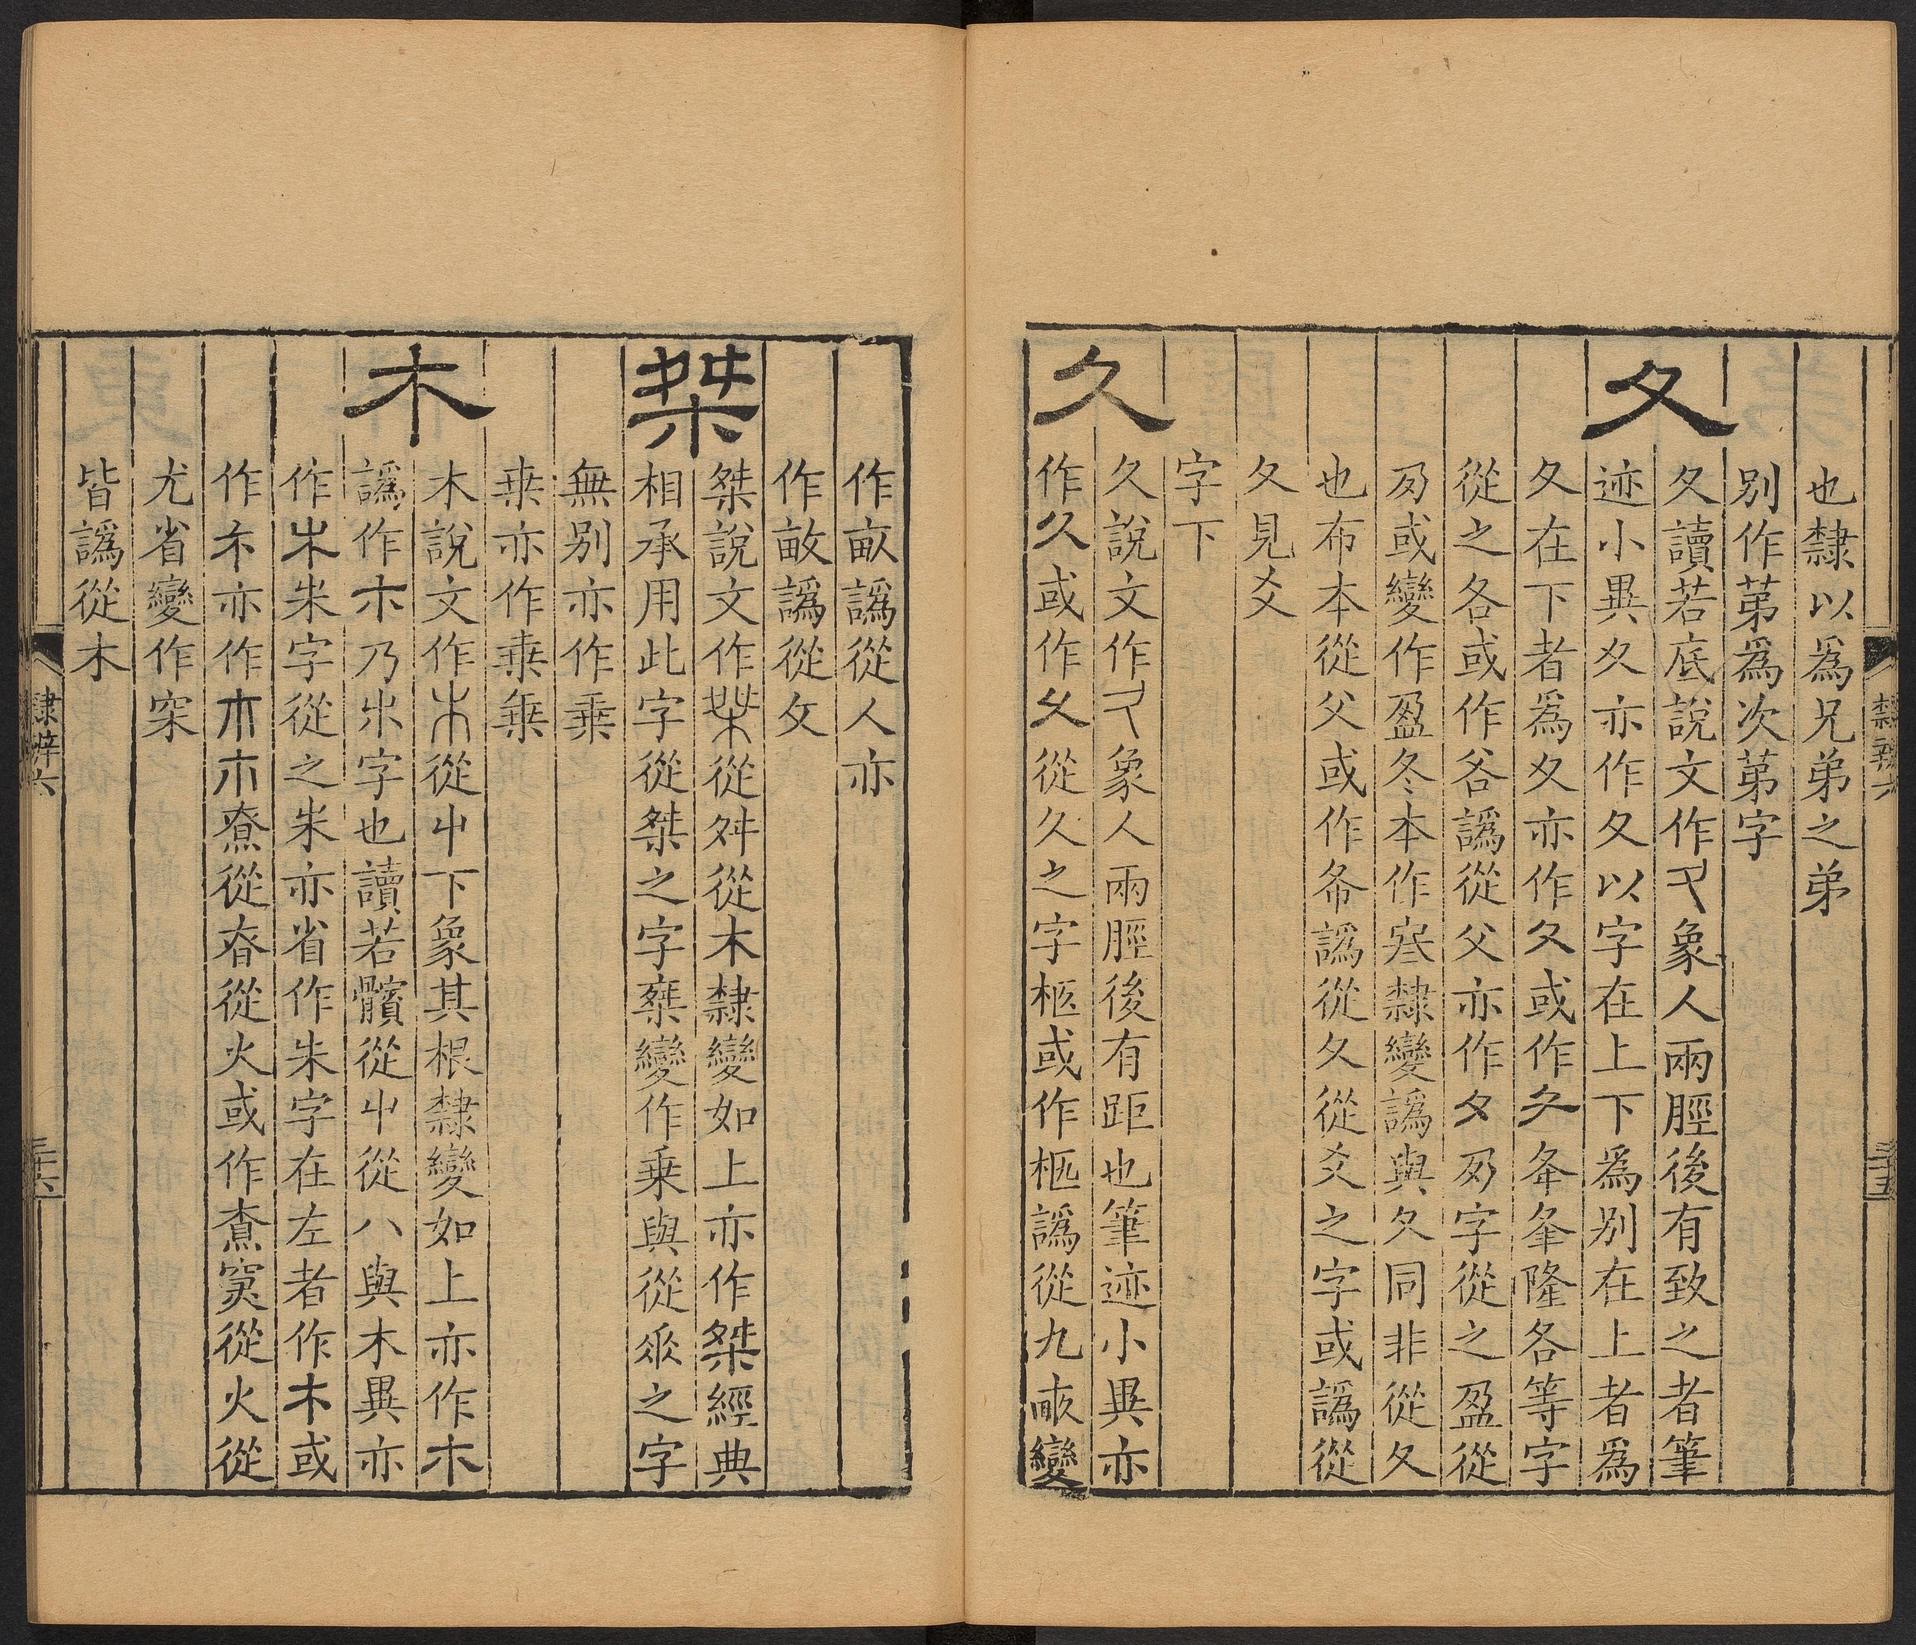 也隸以爲兄弟之弟
別作苐爲次苐字
夂
夂讀若底說文作象人兩脛後有致之者筆
迹小異夂亦作夂以字在上下爲別在上者爲
夂在下者爲夂亦作夂或作夅夆隆各等字
從之各或作咎譌從父亦作夕夃字從之盈從
夃或變作盈冬本作㞱隸變譌與夂同非從夂
也布本從父或作希譌從夂從爻之字或譌從
夂見爻
字下
久
久說文作象人兩脛後有距也筆迹小異亦
作久或作從久之字柩或作柩譌從九畞變
作畝譌從人亦
作畝譌從攵
桀
桀說文作從舛從木隸變如上亦作桀經典
相承用此字從桀之字椉變作乗與從𠂹之字
無別亦作乗
亦作乗
木
木說文作從屮下象其根隸變如上亦作木
譌作乃字也讀若髕從屮從八與木異亦
作朱字從之朱亦省作朱字在左者作木或
作亦作尞從昚從火或作尞從火從
尤省變作
皆譌從木
隸辨六
三十五
隸辨六
三十六